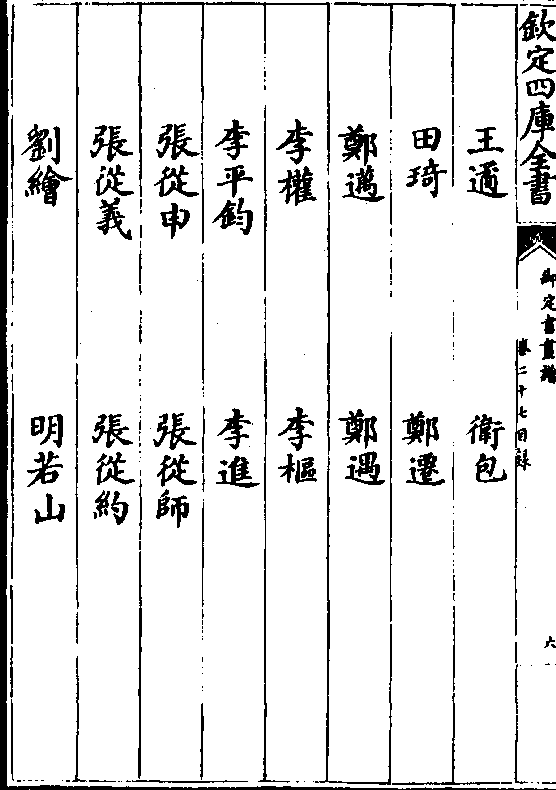 欽定四庫全書
御定書畫譜
卷二十七目錄
六
王遹
衛包
田琦
鄭遷
鄭邁
鄭遇
李權
李樞
李平鈞
李進
張從申
張從師
張從義
張從約
劉繪
明若山